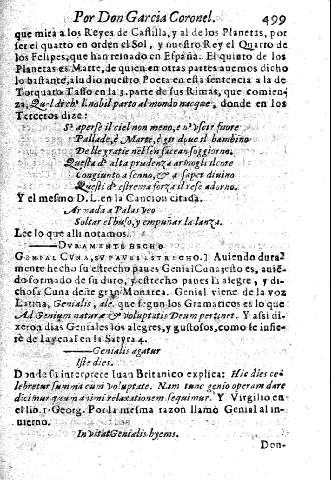 Por Don Garcia Coronel. 499
que mira a los Reyes de Castilla, y al de los Planetas, por
ser el quarto en orden el Sol, y nuestro Rey el Quarto de
los Felipes, que han reinado en España. El quinto de los
Planetas es Marte, de quien en otras partes auemos dicho
lo bastante, aludio nuestro Poeta en esta sentencia a la de
Torquato Tasso en la 3. parte de sus Rimas, que comien-
za, Qual dich' il nobil parto al mondo nacque, donde en los
Tercetos dize:
S' aperse il ciel non meno, e n' uscir fuore
Pallade, è Marte, è gn doue il bambino
De lle gratie nel sen facean soggiorno.
Questa d' alta prudenza armogli il core
Congiunto a senno, & a saper diuino
Questi d' estrema forza il rese adorno.
Y el mesmo D. L. en la Cancion citada.
Armada a Palas veo
Soltar el huso, y empuñar la lanza.
Lee lo que alli notamos.
DURAMENTE HECHO
GENIAL CUNA, SU PAUES ESTRECHO.] Auiendo dura-
mente hecho su estrecho paues Genial Cuna, esto es, auiē-
do formado de su duro, y estrecho paues la alegre, y di-
chosa Cuna deste gran Monarca. Genial viene de la voz
Latina, Genialis, ale, que segun los Gramaticos es lo que
Ad Genium naturæ & voluptatis Deum pertinet. Y assi di-
xeron dias Geniales los alegres, y gustosos, como se infie-
re de Iuuenal en la Satyra 4.
Genialis agatur
Iste dies.
Donde su interprete Iuan Britanico explica: Hic dies ce-
lebretur summa cum voluptate. Nam tunc genio operam dare
dicimur quum animi relaxationem sequimur. Y Virgilio en
el lib. 1. Georg. Por la mesma razon llamò Genial al in-
uierno.
Inuitat Genialis hyems.
Don-